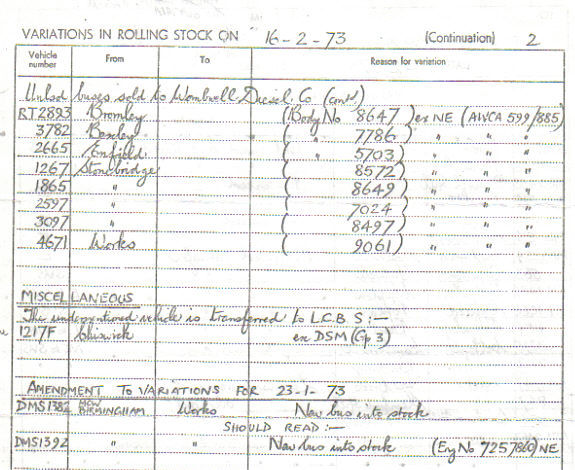 VARIATIONS IN ROLLING STOCK ON 16-2-73 (Continuation) 2
Vehicle number From To Reason for variation
Unlicd buses sold to Wombwell Diesel Co (contd)
RT2893 Bromley (Body No 8647) ex NE (AWCA 599/885)
3782 Bexley ( " 7786) " " "
2665 Enfield ( " 5703) " " "
1267 Stonebridge ( 8572) " " "
1865 " ( 8649) " " "
2597 " ( 7024) " " "
3097 " ( 8497) " " "
4671 Works ( 9061) " " "
MISCELLANEOUS
The undermentioned vehicle is transferred to L.C.B.S:—
1217F Chiswick ex DSM (Gp 3)
AMENDMENT TO VARIATIONS FOR 23-1-73
DMS1382 MCW BIRMINGHAM Works New bus into stock
SHOULD READ:—
DMS1392 " " New bus into stock (Eng No 725780) NE